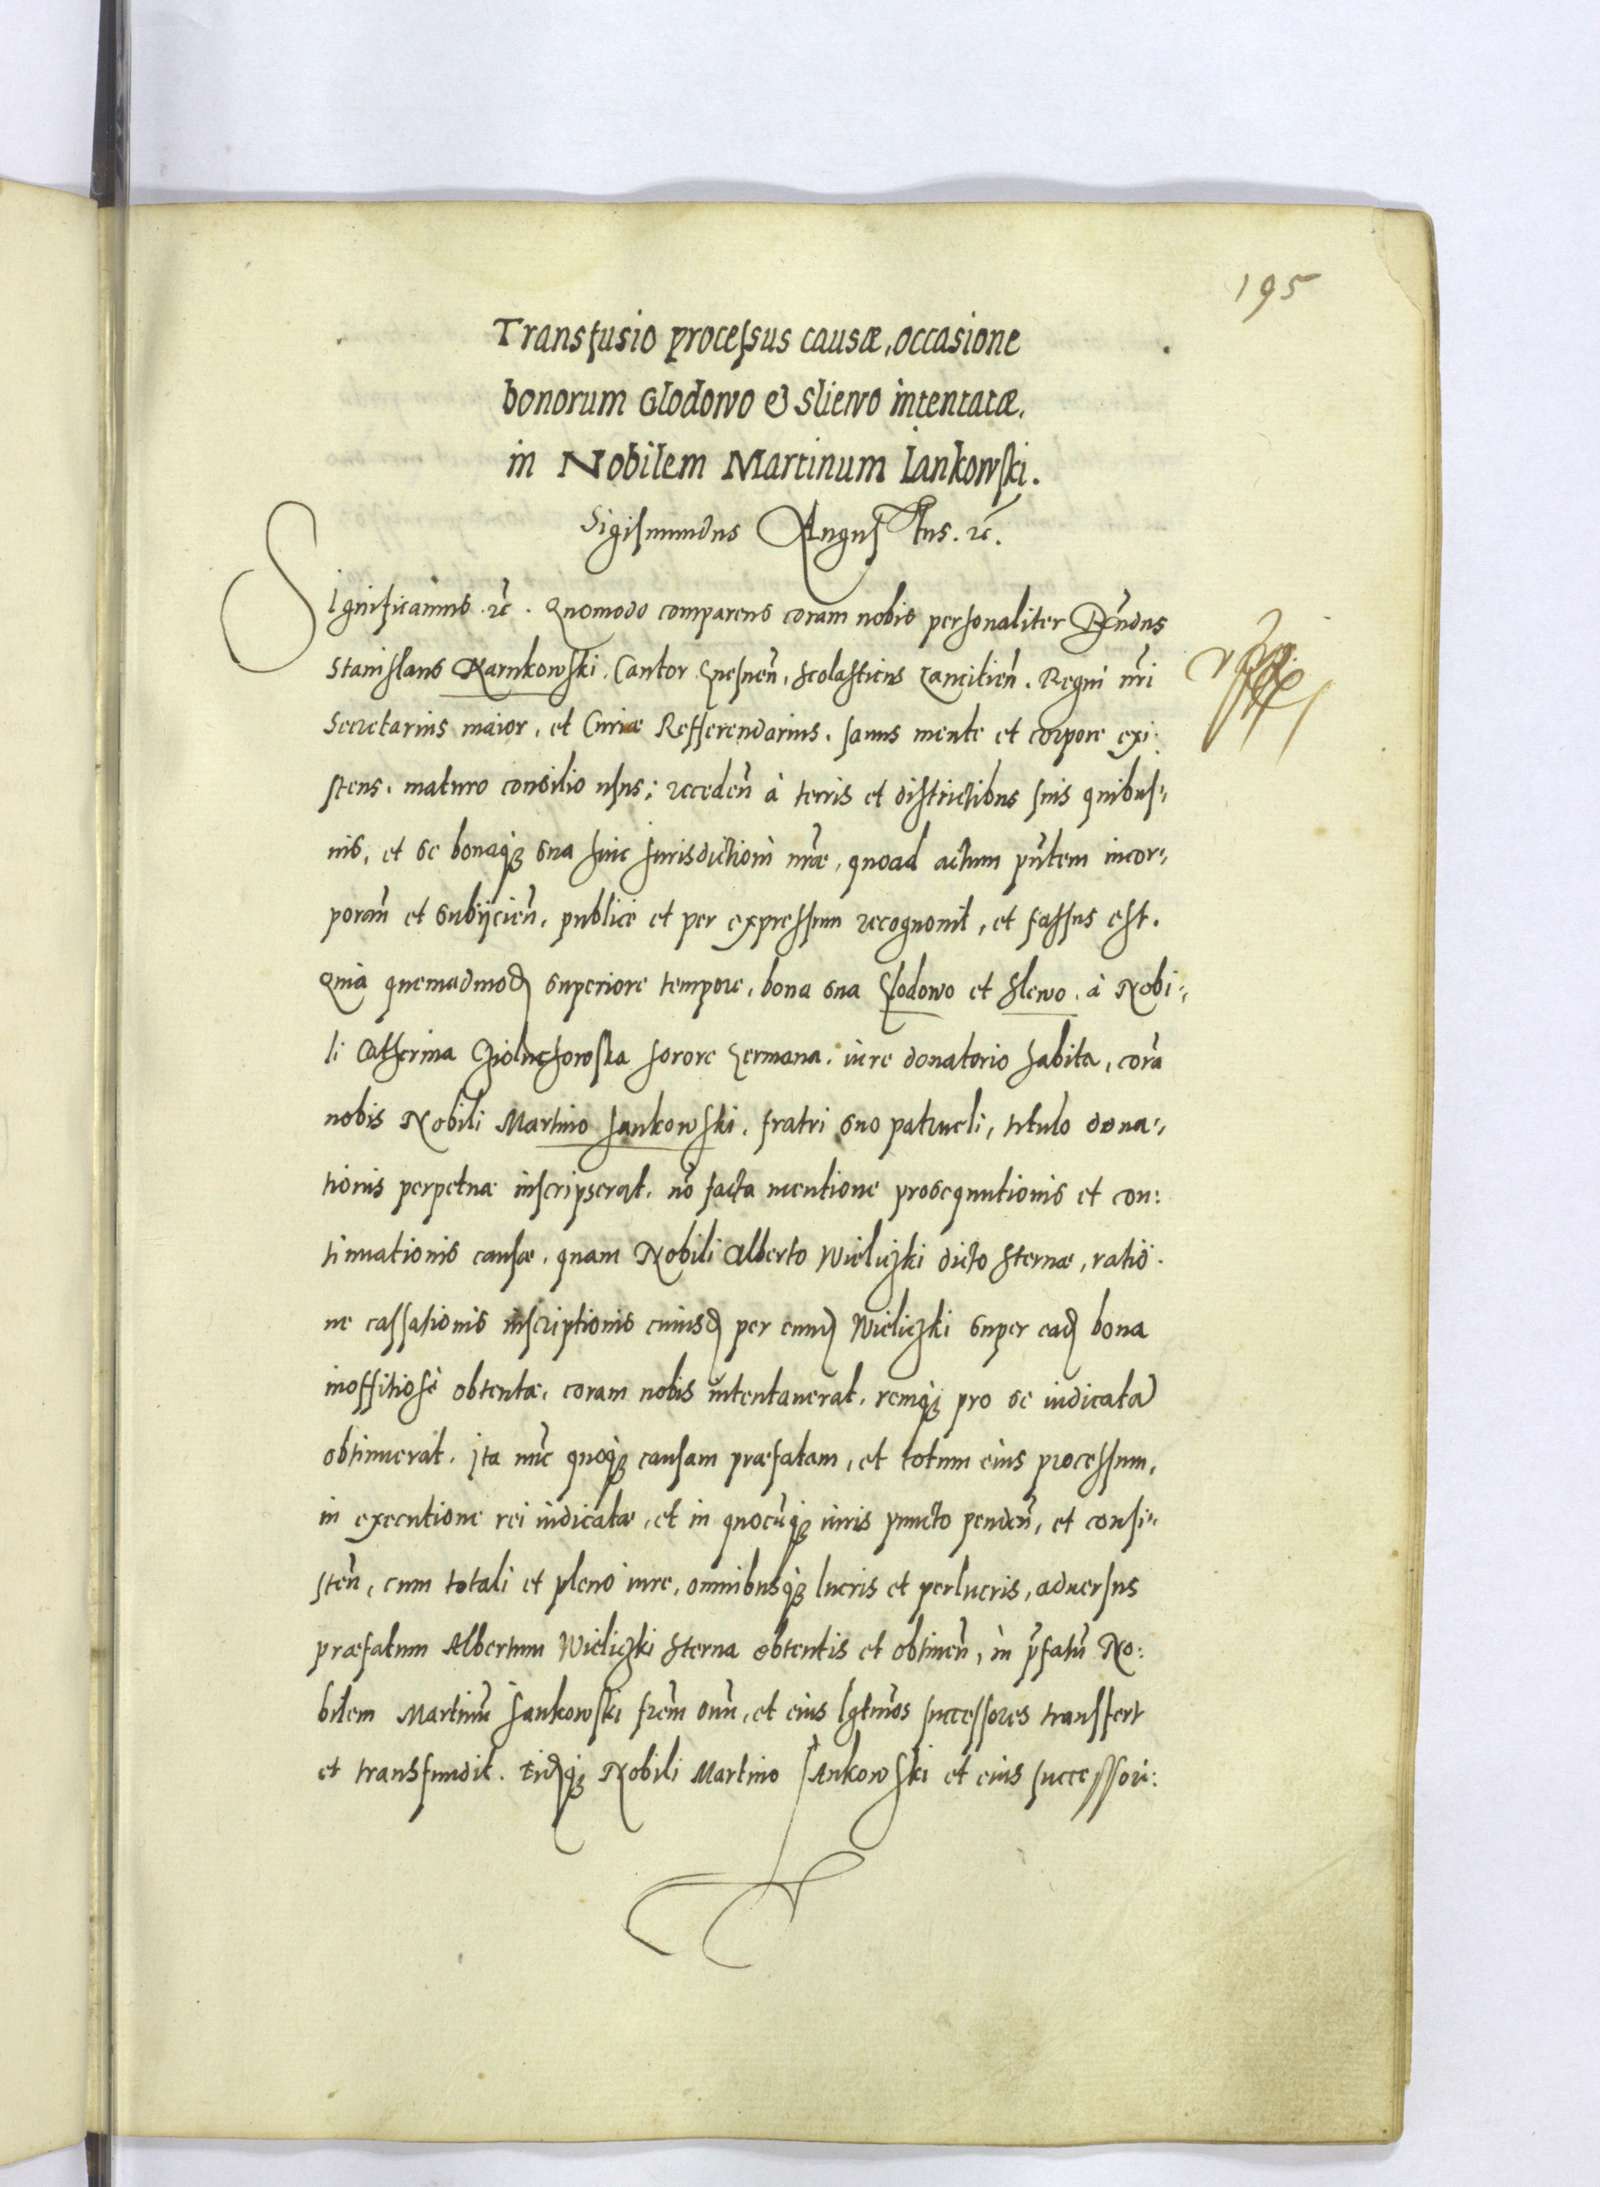 195
Transfusio processus causæ, occasione
bonorum Glodowo & Sliewo intentatæ,
in Nobilem Martinum Iankowski.
Sigismundus Augustus. ꝛc̃.
Significamus. ꝛc̃. Quomodo comparens coram nobis personaliter Rñdus
Stanislaus Karnkowski. Cantor Gnesneñ, Scolasticus Lanciticeñ. Regni nr̃i
Secretarius maior, et Curiæ Refferendarius, sanus mente et corpore exi:
stens, maturo consilio usus; recedeñ à terris et districtibus suis quibus-,
uis, et se bonaq́ꝫ sua huic Iurisdictioni nr̃æ, quoad actum pñtem incor-,
poran̄ et subijcien̄, publicè et per expressum recognouit, et fassus est.
Quia quemadmoď superiore tempore, bona sua Glodowo et Slewo, à Nobi-,
li Catherina Gioluchowska sorore Germana, iure donatorio habita, corã
nobis Nobili Martino Iankowski, fratri suo patrueli, titulo dona-,
tionis perpetuæ inscripserat, nõ facta mentione prosequutionis et con:
tinuationis causæ, quam Nobili Alberto Wieliczki dicto Sternæ, ratio-
ne cassationis inscriptionis cuiusď per eunď Wieliczki super eaď bona
inoffitiosè obtentæ, coram nobis intentauerat, remq́ꝫ pro se iudicatã
obtinuerat. Ita nũc quoq́ꝫ causam præfatam, et totum eius processum,
in executione rei iudicatæ, et in quocũq́ꝫ iuris puncto penden̄, et consi-,
sten̄, cum totali et pleno iure, omnibusq́ꝫ lucris et perlucris, aduersus
præfatum Albertum Wieliczki Sterna obtentis et obtinen̄, in p̃fatũ No:
bilem Martinũ Iankowski frẽm suũ, et eius lgtimos successores transfert
et transfundit. Eiďq́ꝫ Nobili Martino Iankowski et eius successori: